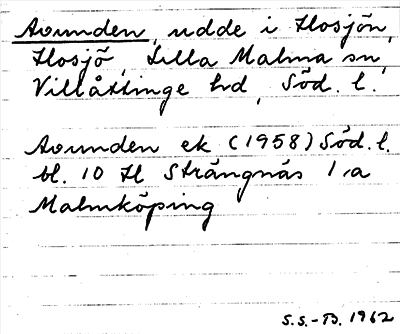 Avunden, udde i Hosjön,
Hosjö, Lilla Malma sn,
Villåttinge hd, Söd. l.
Avunden ek (1958) Söd. l.
bl. 10 H Strängnäs 1:a
Malmköping
S.S.-B. 1962